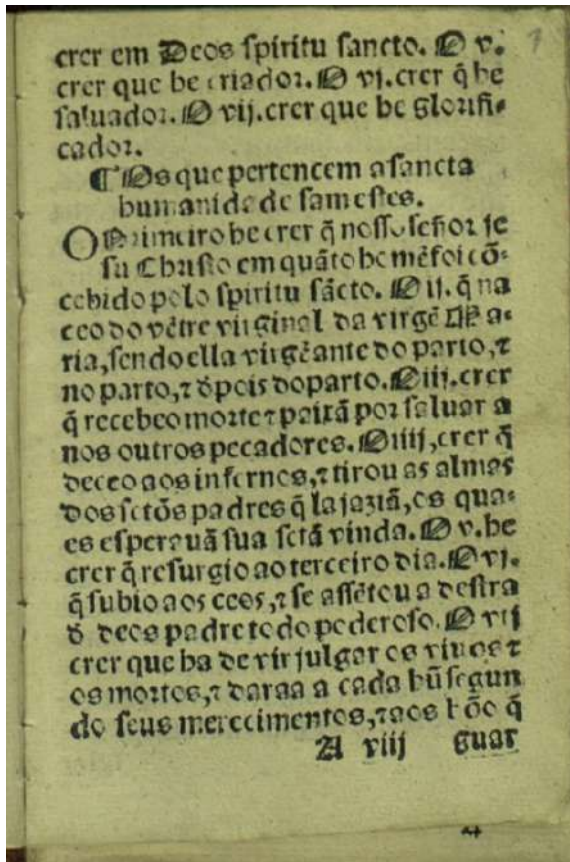 crer em Deos spiritu sancto. O v.
crer que he criador. O vj. crer q̃ he
saluador. O vij. crer que he glorifi-
cador.
¶ Os que pertencem a sancta
humanidade sam estes.
O Primeiro he crer q̃ nosso señor je
su Christo em quãto homẽ foi cõ-
cebido polo spiritu sãcto. O ij. q̃ na
ceo do vẽtre virginal da virgẽ Ma-
ria, sendo ella virgẽ ante do parto, ⁊
no parto, ⁊ d̃pois do parto. O iij. crer
q̃ recebeo morte ⁊ paixã por saluar a
nos outros pecadores. O iiij, crer q̃
deceo aos infernos, ⁊ tirou as almas
dos sctõs padres q̃ la jaziã, os qua-
es esperauã sua sctã vinda. O v. he
crer q̃ resurgio ao terceiro dia. O vj.
q̃ subio aos ceos, ⁊ se assẽtou a destra
d̃ deos padre todo poderoso. O vij
crer que ha de vir julgar os viuos ⁊
os mortos, ⁊ daraa a cada hũ segun
do seus merecimentos, ⁊ aos bõs q̃
A viij guar